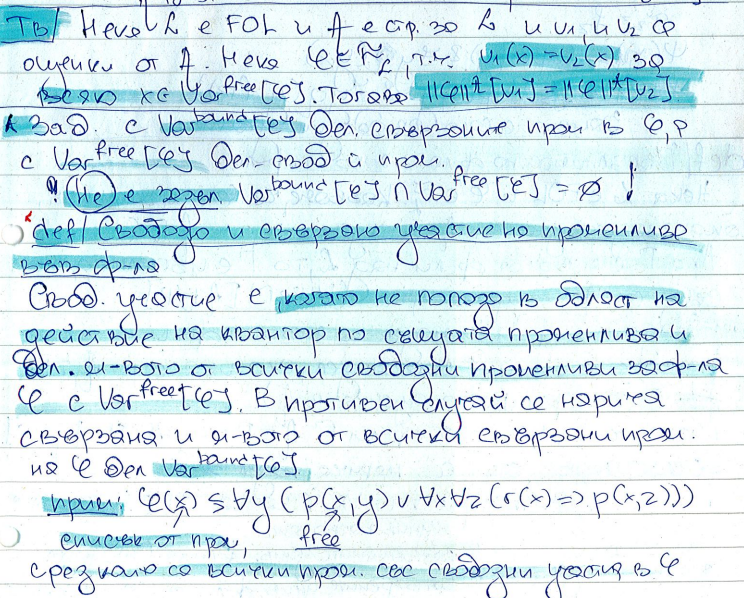 Тв/ Нека L е FOL и A е стр. за L и v1, и v2 са
оценки от A. Нека φ ∈ F_L, т.ч. v1(x) = v2(x) за
всяко x ∈ Var^free[φ]. Тогава ||φ||^A[v1] = ||φ||^A[v2]
Заб. с Var^bound[φ] бел. свързаните пром в φ, а
с Var^free[φ] бел. свобод и пром.
! Не е задъл. Var^bound[φ] ∩ Var^free[φ] = ∅ !
def/ Свободо и свързано участие на променлива
във ф-ла
Свобд. участие е когато не попада в област на
действие на квантор по същата променлива и
бел. м-вото от всички свободни променливи за ф-ла
φ с Var^free[φ]. В противен случай се нарича
свързана и м-вото от всички свързани пром.
на φ бел Var^bound[φ]
прим: φ(x) ≤ ∀y (p(x,y) ∨ ∀x∀z (r(x) => p(x,z)))
списък от пром, free
сред които са всички пром. със свободни участия в φ